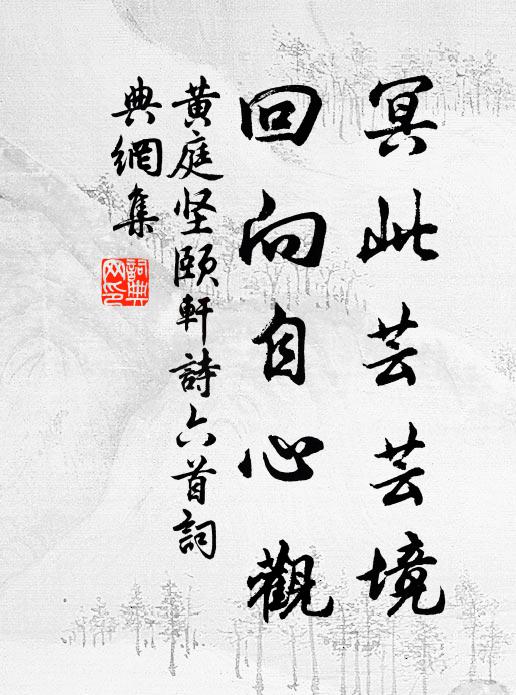 冥此芸芸境
回向自心觀
黄庭坚頤軒詩六首詞
典網集
詞典
网印